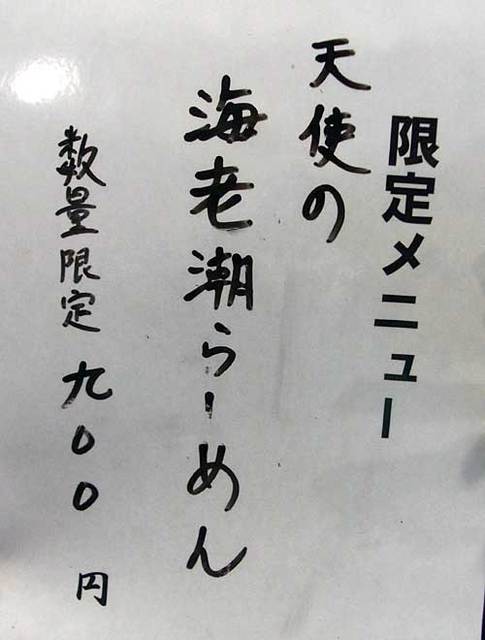 限定メニュー
天使の
海老潮らーめん
数量限定 九〇〇 円